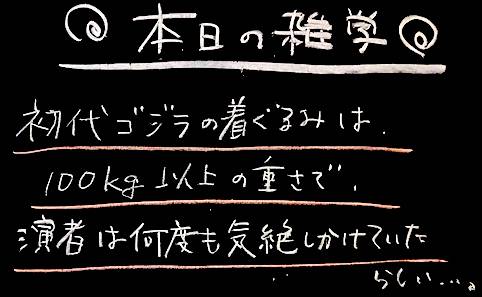 本日の雑学
初代ゴジラの着ぐるみは、
100kg以上の重さで、
演者は何度も気絶しかけていた
らしい…。